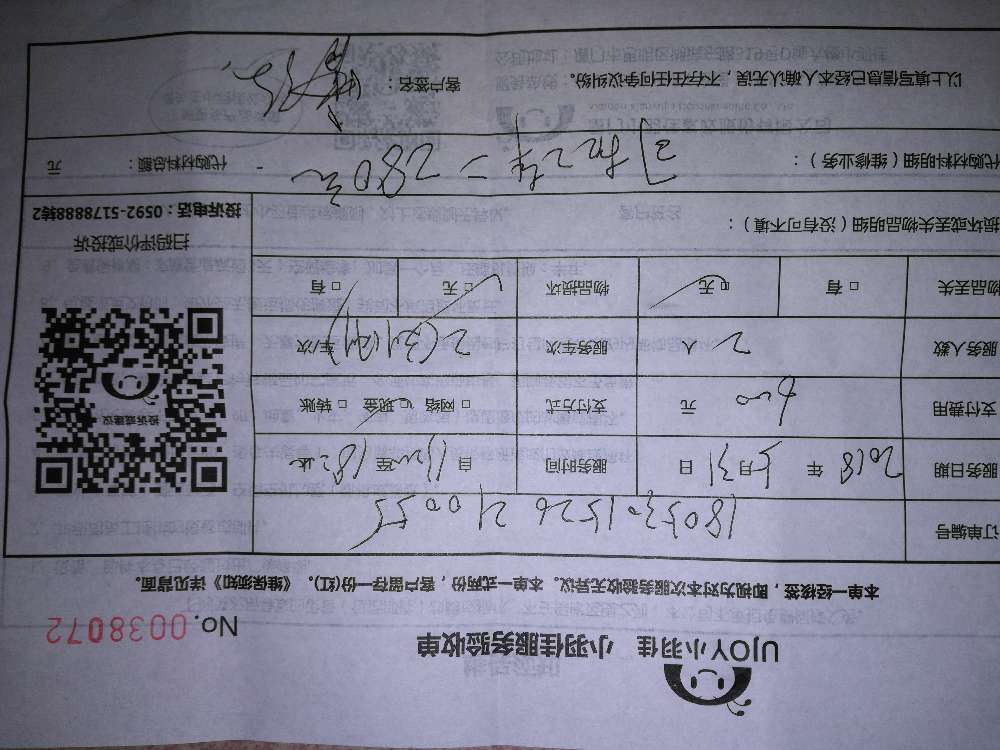 UJOY小羽佳 小羽佳服务验收单
No. 0038072
本单一经核签，即视为对本次服务验收无异议。本单一式两份，客户留存一份(红)。《维保须知》详见背面。
订单编号 1805301526210055
服务日期 2018 年 5 月 31 日 服务时间 自 至
支付费用 600 元 支付方式 □ 网络 □ 现金 □ 转账
服务人数 2 人 服务车次 车/次
物品丢失 □ 有 □ 无 物品损坏 □ 无 □ 有
损坏或丢失物品明细（没有可不填）：
代购材料明细（维修业务）： = 280元 代购材料总额： 元
以上填写信息已经本人确认无误，不存在任何争议纠纷。 客户签名：
投诉或建议
扫码评价或投诉
投诉电话：0592-5178888转2